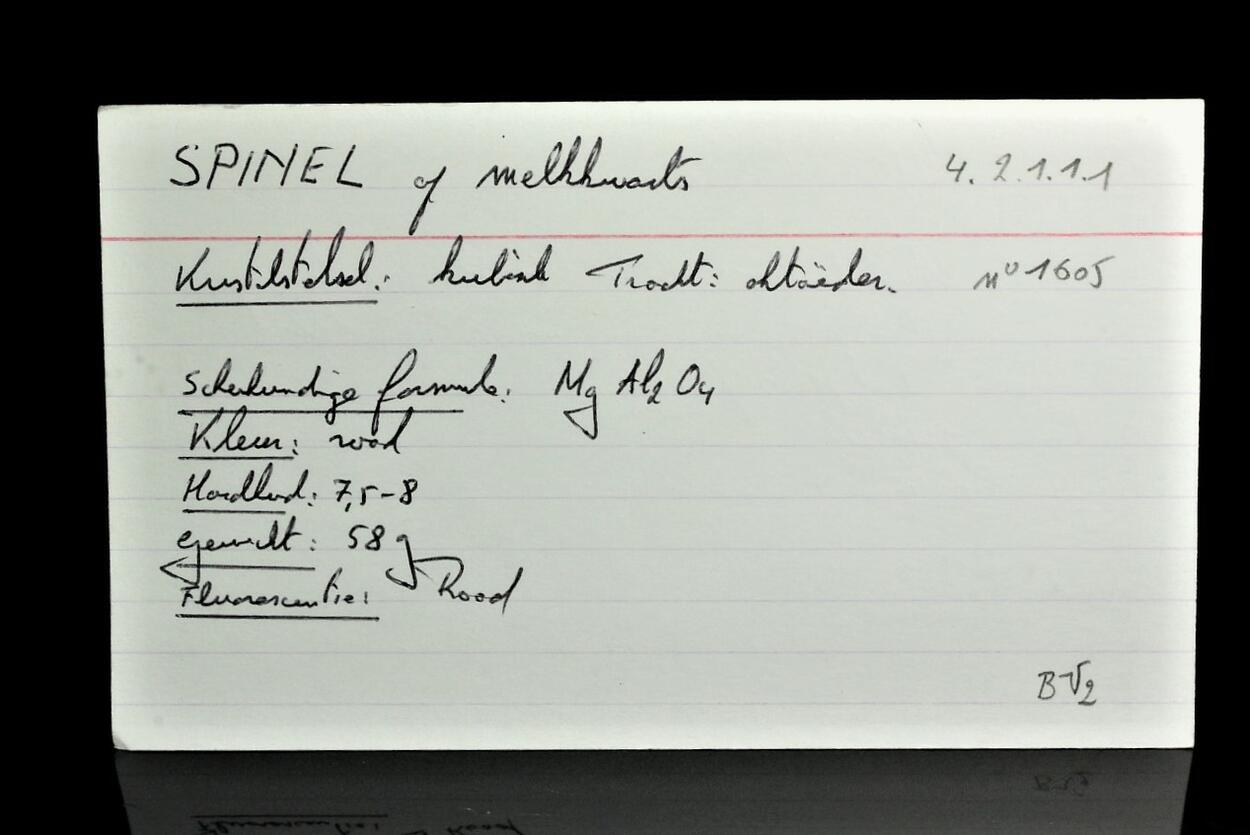 SPINEL of melkkwarts 4.2.1.1.1
Kristalstelsel: kubisch Tracht: oktaëder. n° 1605
Scheikundige formule: Mg Al2 O4
Kleur: rood
Hardheid: 7,5-8
gewicht: 58 g
Fluorescentie: Rood
BV2